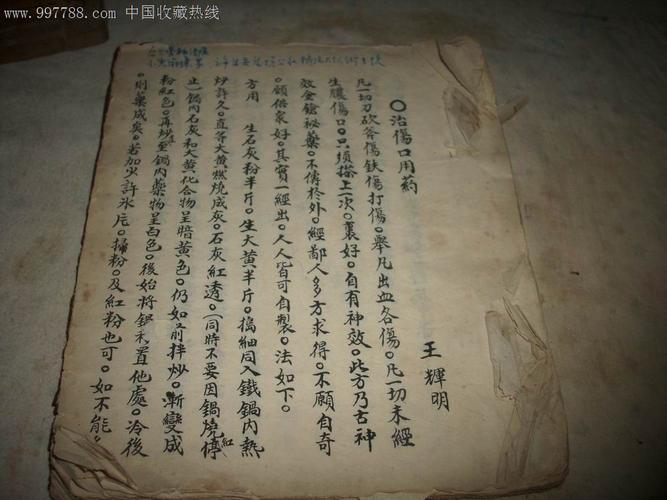 www.997788.com 中国收藏热线
〇治傷口用葯
王輝明
凡一切刀砍斧傷鉄傷打傷。舉凡出血各傷。凡一切未經
生膿傷口。只須搽上一次。裏好。自有神效。此方乃古神
效金鎗秘藥。不傳於外。經鄙人多方求得。不願自奇
。願倍衆好。其實一經出。人人皆可自製。法如下。
方用 生石灰粉半斤。生大黃半斤。搗細同入鐵鍋內熱
炒許久。直等大黃燃燒成灰。石灰紅透。(同時不要因鍋燒紅停
止)鍋內石灰和大黃化合物呈暗黃色。仍如前拌炒。漸變成
粉紅色。再炒至鍋內藥物呈白色。後始將鍋禾置他處。冷後
。則藥成矣。若加少許氷片。掃粉。及紅粉也可。如不能。